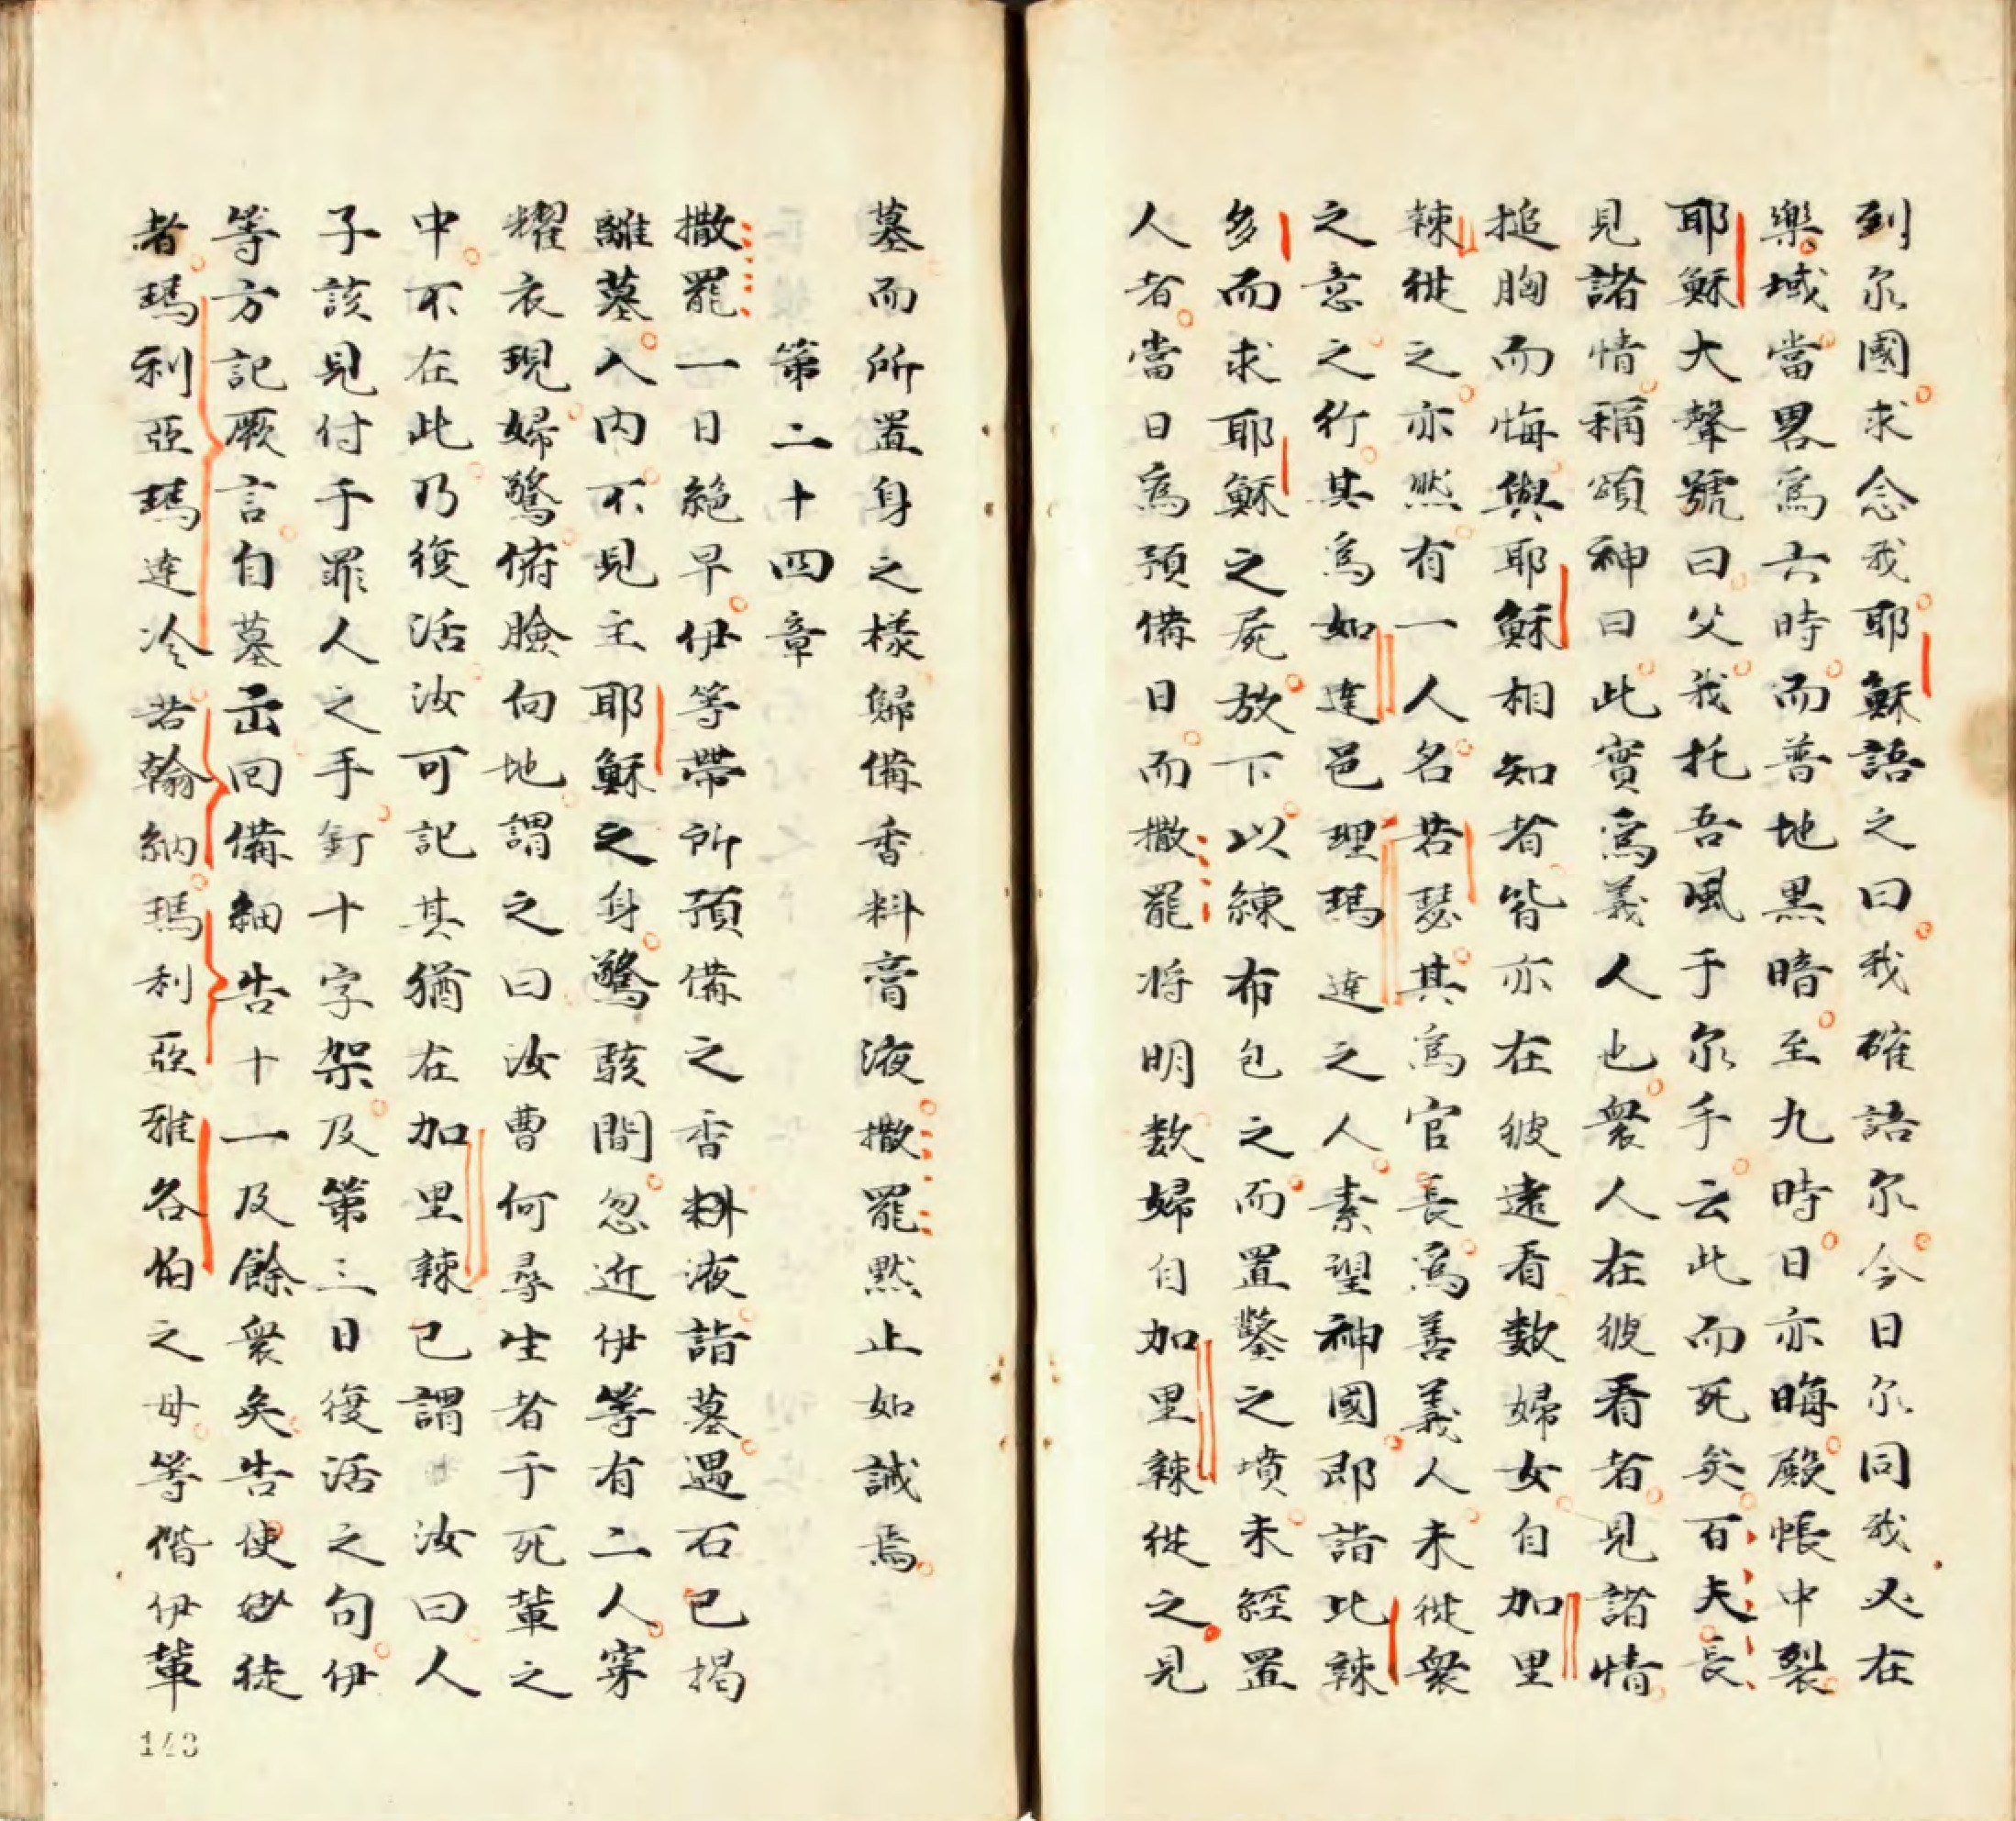 到尔國求念我耶穌語之曰我確語尔今日尔同我必在
樂域當畧為六時而普地黑暗至九時日亦晦殿帳中裂
耶穌大聲號曰父我托吾風于尔手云此而死矣百夫長
見諸情稱頌神曰此實為義人也衆人在彼看者見諸情
搥胸而悔與耶穌相知者皆亦在彼遠看數婦女自加里
辣從之亦然有一人名若瑟其為官長為善義人未從衆
之意之行其為如達邑理瑪達之人素望神國即詣比辣
多而求耶穌之屍放下以練布包之而置鑿之墳未經置
人者當日為預備日而撒罷将明数婦自加里辣從之見
墓而所置身之樣歸備香料膏液撒罷黙止如誡焉
第二十四章
撒罷一日絕早伊等帶所預備之香料液詣墓遇石已揭
離墓入內不見主耶穌之身驚駭間忽近伊等有二人穿
耀衣現婦驚俯臉向地謂之曰汝曹何尋生者于死輩之
中不在此乃復活汝可記其猶在加里辣已謂汝曰人
子該見付于罪人之手釘十字架及第三日復活之句伊
等方記厥言自墓出回備細告十一及餘衆矣告使徒
者瑪利亞瑪達冷若翰納瑪利亞雅各伯之母等偕伊輩
143